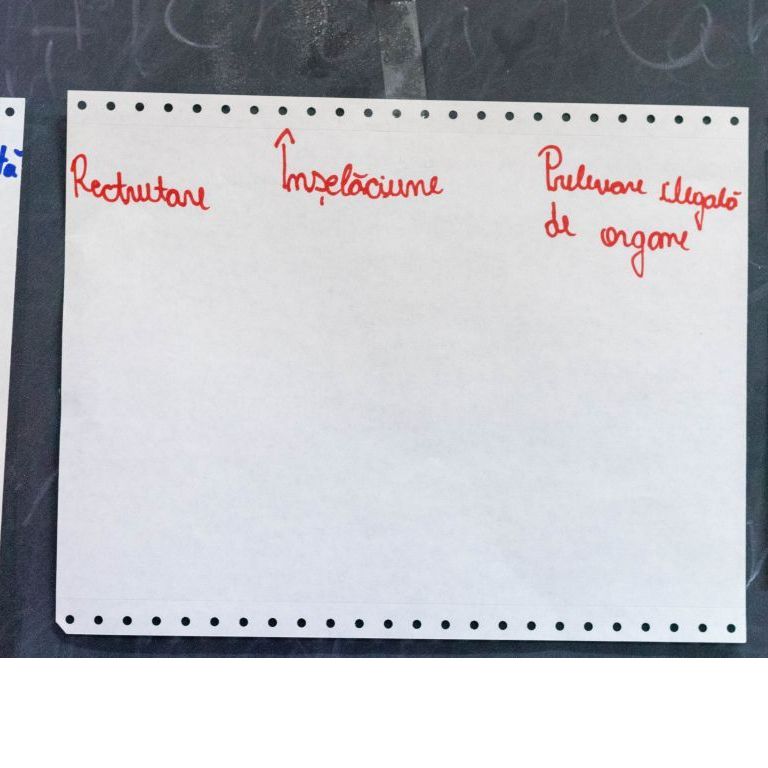 tă
Rectrutare
Înșelăciune
Prelevare ilegală
de organe